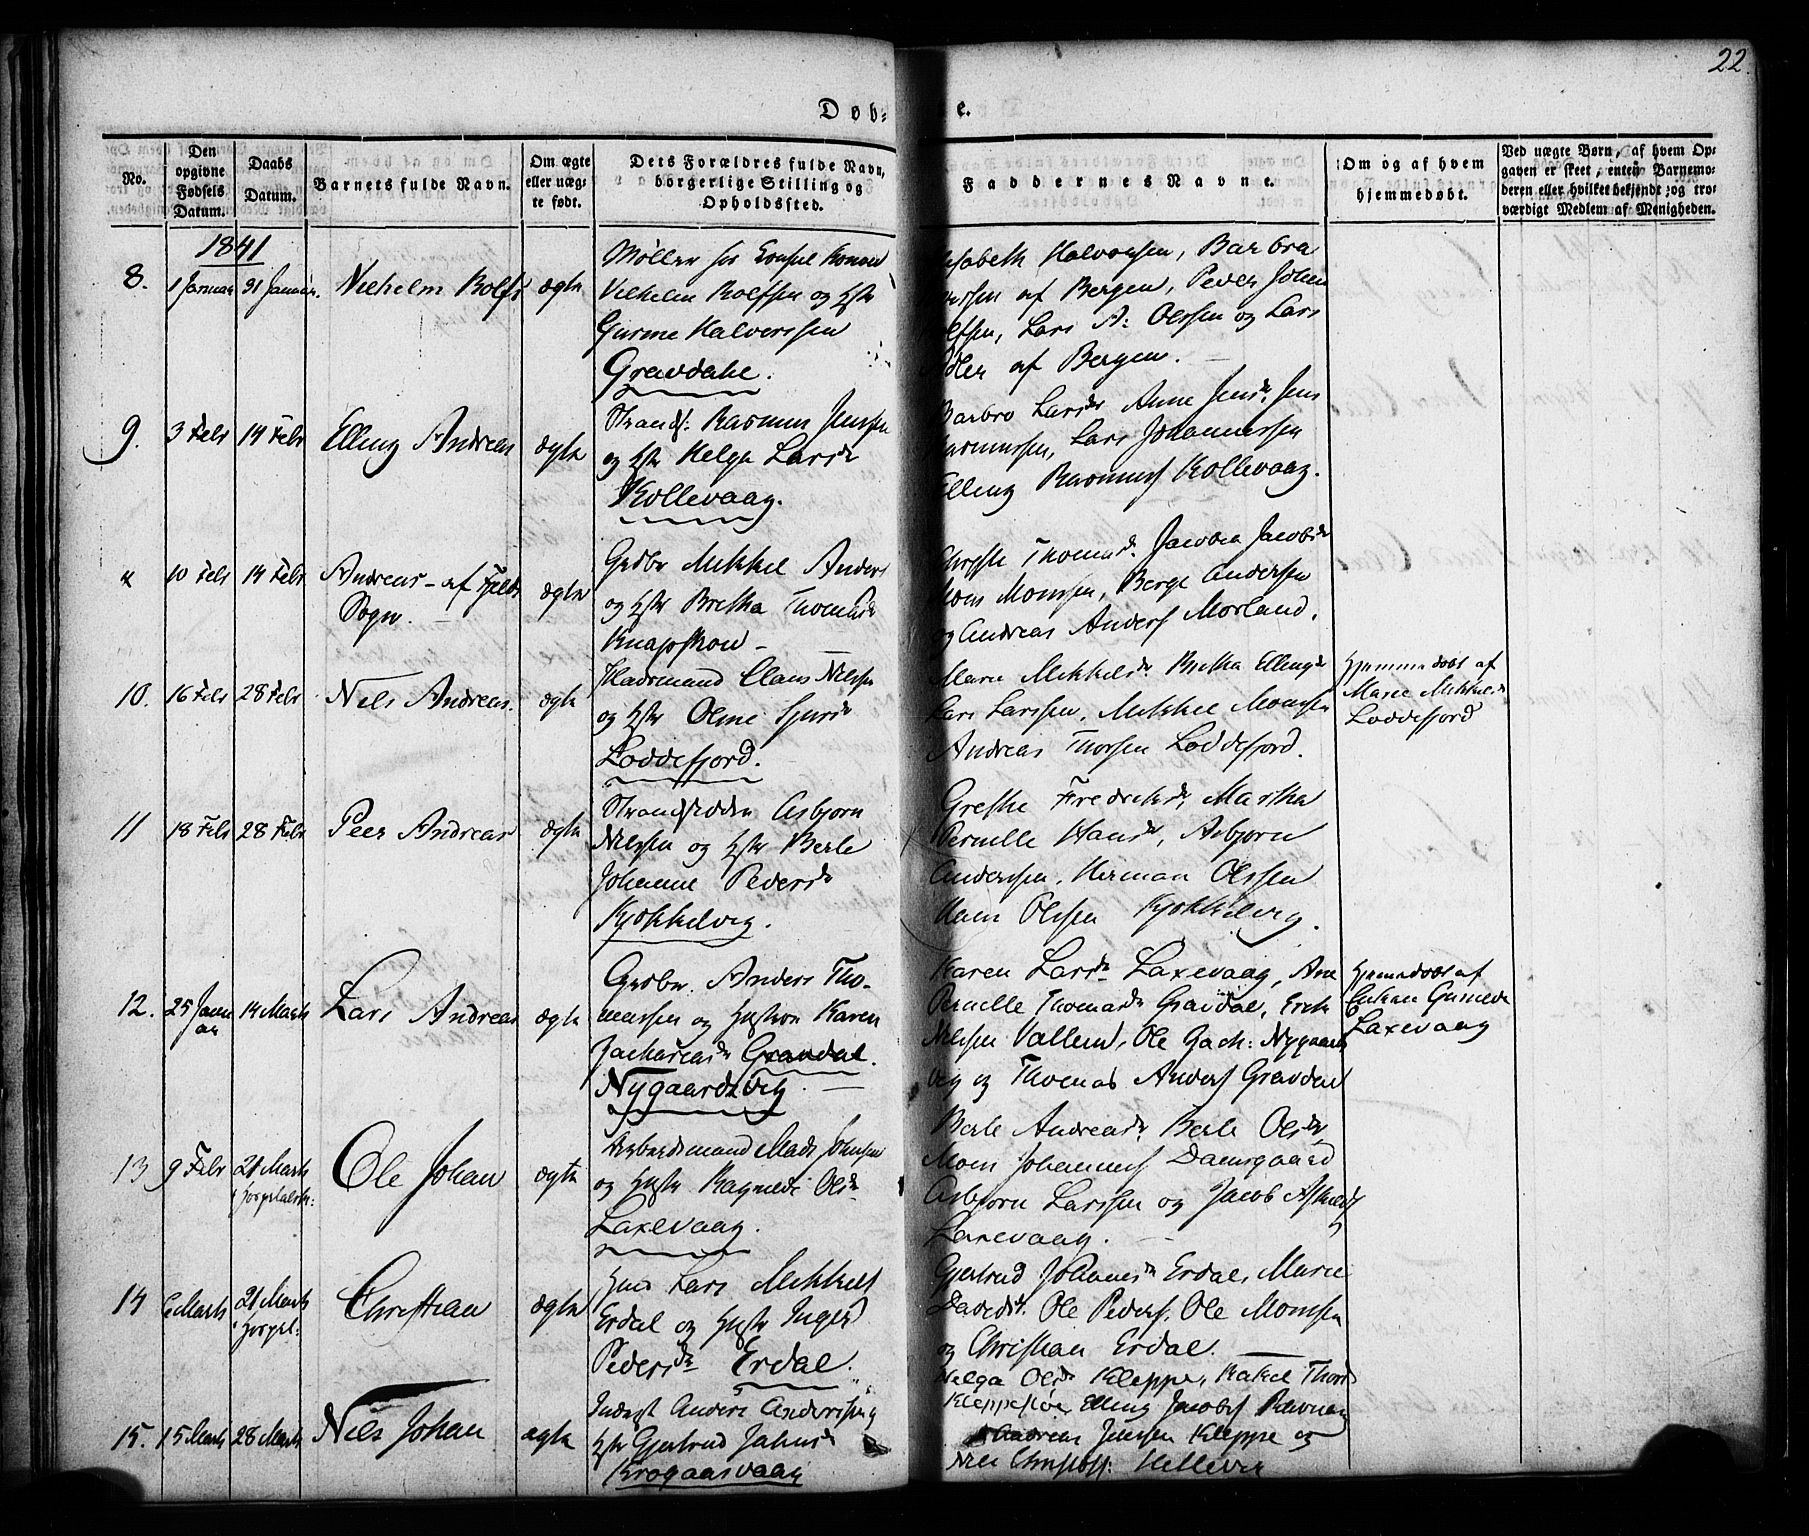 22.
Døb= e.
No.
Den opgivne Fødsels Datum.
Daabs Datum.
Barnets fulde Navn.
Om ægte eller uægte født.
Dets Forældres fulde Navn, borgerlige Stilling og Opholdssted.
Faddernes Navne.
Om og af hvem hjemmedøbt.
Ved uægte Børn, af hvem Opgaven er skeet, enten Barnemoderen eller hvilket bekjendt og troværdigt Medlem af Menigheden.
1841
8. 1 Januar 31 Januar. Vilhelm Rolfs ægte
Møller for Consul Konow
Vilhelm Rolfsen og Hstr
Gurine Halvorssen
Gravdahl.
Halvorssen, Barbra
af Bergen, Peder Johan
Lars A: Olssen og Lars
af Bergen.
9. 3 Febr 14 Febr Elling Andreas ægte
Strands: Rasmus Jenssen
og Hstr Helga Larsdr
Kollevaag.
Barbro Larsdr Anne Jensdr Jens
Rasmussen, Lars Johannessen
Elling Rasmuss Kollevaag.
10 Febr 14 Febr Andreas - af Fjelds
Sogn. ægte
Grdbr Mikkel Anders
og Hstr Bretha Thomasdr
Knapskou -
Thomasdr Jacobea Jacobsdr
Mons Monssen, Berge Anderssen
og Andreas Anderss Morland.
10. 16 Febr 28 Febr Nels Andreas. ægte
Huusmand Claus Nelssen
og Hstr Oline Sjursdr
Loddefjord.
Marie Mikkelsdr Bretha Ellingsdr
Lars Larssen, Mikkel Monssen
Andreas Thorssen Loddefjord.
Hjemmedøbt af
Marie Mikkelsdr
Loddefjord
11 18 Febr 28 Febr Peer Andreas ægte
Strandsidder Asbjørn
Nilssen og Hstr Berle
Johanne Pedersdr
Kjøkkelvig.
Grethe Fredriksdr, Martha
Pernille Hansdr, Asbjørn
Anderssen, Herman Olssen
Hans Olssen Kjøkkelvig.
12. 25 Janu
ar 14 Marts Lars Andreas ægte
Grdbr. Anders Tho-
massen og Hustroe Karen
Zachariasdr Gravdal.
Nygaardsvig.
Karen Larsdr Laxevaag, Ane
Pernille Thomasdr Gravdal, Erik
Nilssen Vallem, Ole Zach: Nygaards
vig og Thomas Anderss Gravdal
Hjemmedøbt af
Enken Gunild
Laxevaag
13 9 Febr 21 Marts
i Hospitalsk: Ole Johan ægte
Arbeidsmand Mads Johnsen
og Hustr Ragnilde Olsdr
Laxevaag.
Berle Andreasdr Berle Olsdr
Mons Johanness Damsgaard
Asbjørn Larssen og Jacob
Laxevaag.
14 6 Marts 21 Marts
i Hospit: Christian ægte
Gmd Lars Mikkels
Erdal og Hustr Inger
Pedersdr Erdal.
Gjertrud Johannesdr Erdal, Marie
Davidsdr. Ole Pederss, Ole Monssen
og Christian Erdal.
15. 15 Marts 28 Marts Nils Johan ægte
Inderst Anders Anderssen og
Hstr Gjertrud Johnsdr
Krogaasvaag
Helga Olsdr Kleppe, Rakel Thords
Kleppestøe, Elling Jacobs Ravnang
Andreas Jenssen Kleppe og
Nils Christoff: Hillevig